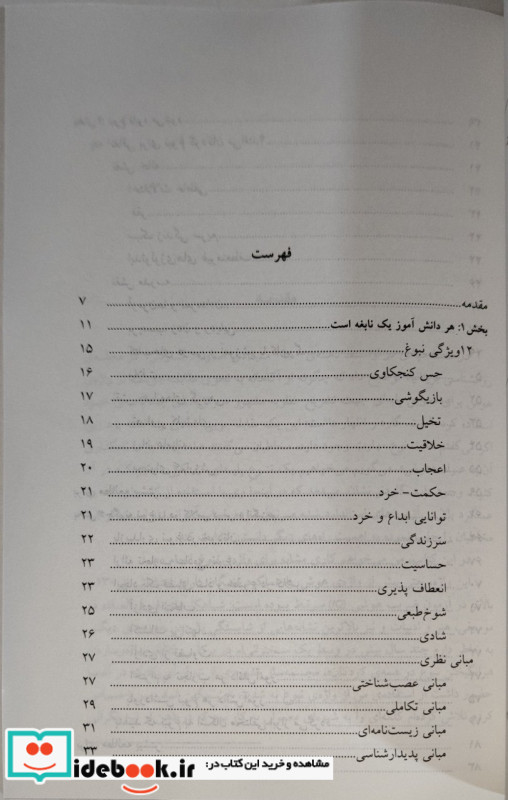 فهرست
مقدمه ۷
بخش ۱: هر دانش آموز یک نابغه است ۱۱
۱۲ویژگی نبوغ ۱۵
حس کنجکاوی ۱۶
بازیگوشی ۱۷
تخیل ۱۸
خلاقیت ۱۹
اعجاب ۲۰
حکمت- خرد ۲۱
توانایی ابداع و خرد ۲۱
سرزندگی ۲۲
حساسیت ۲۳
انعطاف پذیری ۲۳
شوخ‌طبعی ۲۵
شادی ۲۶
مبانی نظری ۲۷
مبانی عصب‌شناختی ۲۷
مبانی تکاملی ۲۹
مبانی زیست‌نامه‌ای ۳۱
مبانی پدیدارشناسی ۳۳
مشاهده و خرید این کتاب در:
idebook.ir